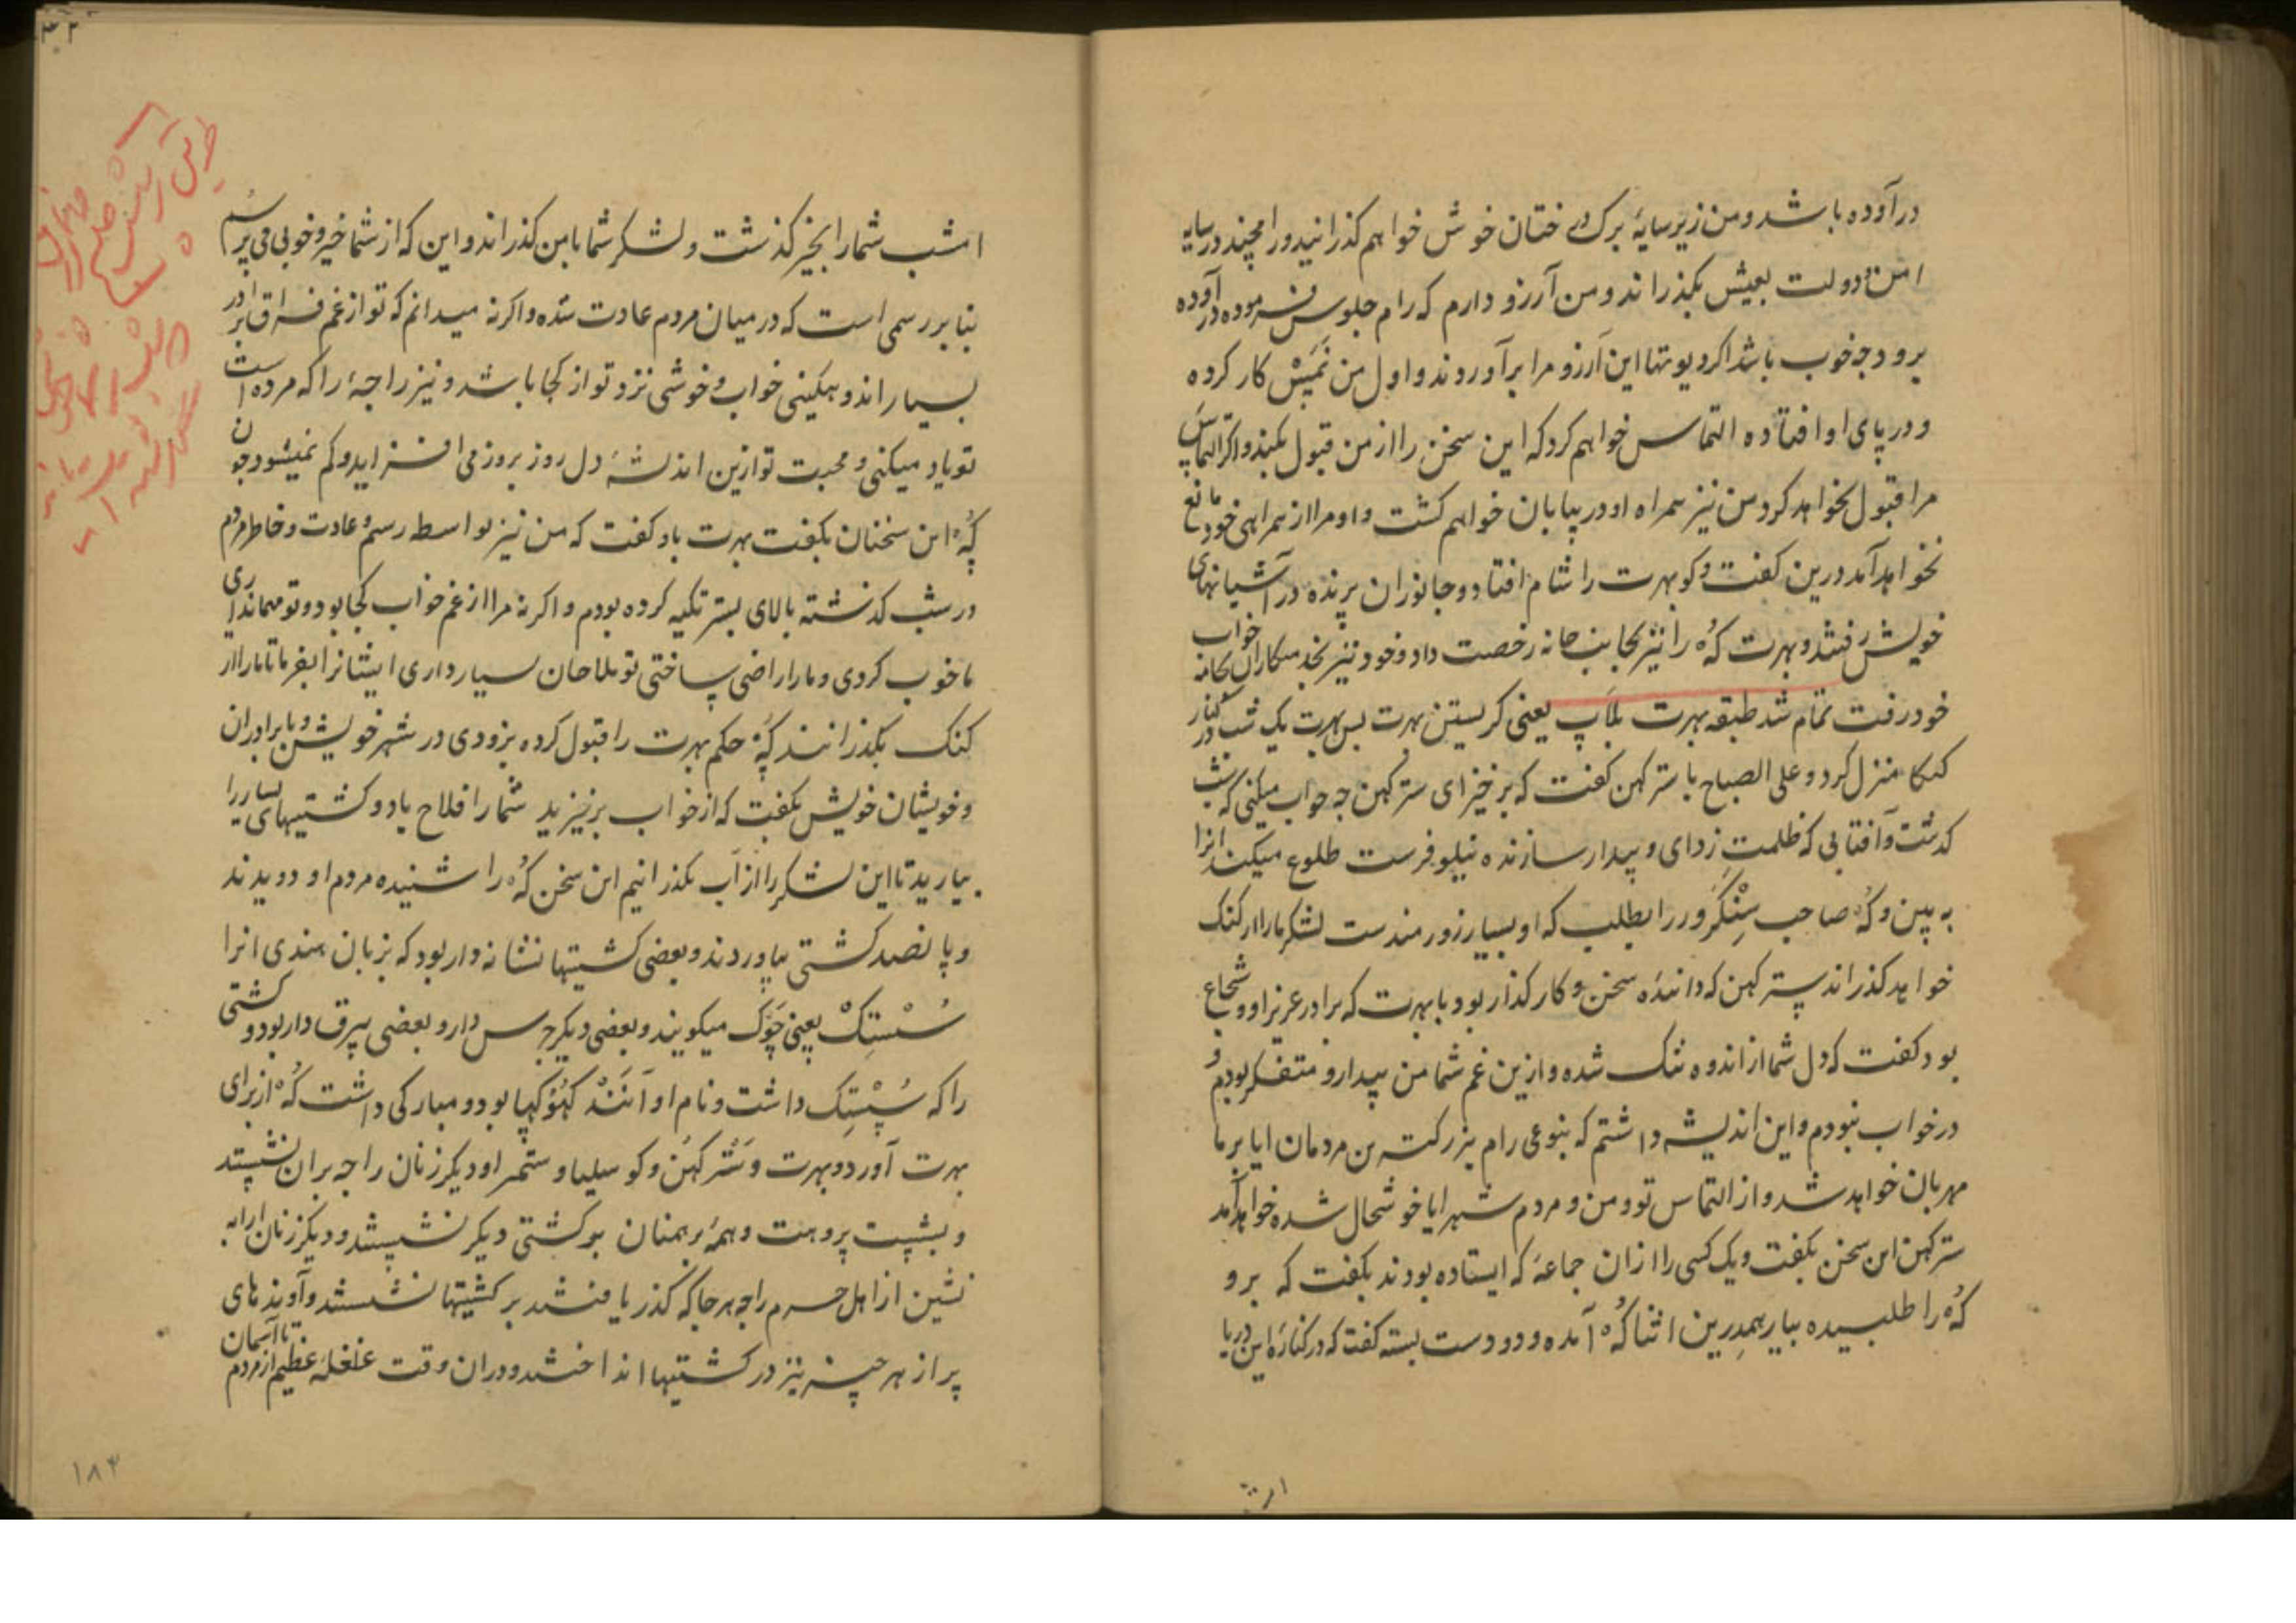 درآورده باشد و من زیر سایهٔ برک درختان خوش خواهم کذرانید و رامچند در سایه
امن دولت بعیش بکذراند و من آرزو دارم که رام جلوس فرموده درآورده
برو وچه خوب باشد اکر دیوتها این آرزو مرا برآوردند و اول من نَمَسْ کار کرده
و در پای او افتاده التماس خواهم کرد که این سخن را از من قبول بکند و اکر التماس
مرا قبول نخواهد کرد من نیز همراه او در بیابان خواهم کشت و او مرا از همراهی خود مانع
نخواهد آمد درین کفت وکو بهرت را شام افتاد و جانوران پرنده در آشیانهای
خویش رفتند و بهرت کُهْ را نیز بجانب خانه رخصت داد و خود نیز بخدمتکاران بخانه خواب
خود رفت تمام شد طبقه بهرت بلاپ یعنی کریستن بهرت پس بهرت یک شب در کنار
کنکا منزل کرد و علی الصباح با سترکهن کفت که برخیز ای سترکهن چه خواب میکنی که شب
کذشت و آفتابی که ظلمت زدای و بیدار سازنده نیلوفرست طلوع میکند انرا
به بین و کُهْ صاحب سِنْکَرور را بطلب که او بسیار زورمندست لشکر مارا از کنک
خواهد کذراند سترکهن که دانندهٔ سخن و کارکذار بود با بهرت که برادر عزیز او و شجاع
بود کفت که دل شما از اندوه تنک شده و ازین غم شما من بیدار و متفکر بودم و
در خواب نبودم و این اندیشه داشتم که بنوعی رام بزرکترین مردمان ایا بر ما
مهربان خواهد شد و از التماس تو و من و مردم شهر ایا خوشحال شده خواهد آمد
سترکهن این سخن بکفت و یک کسی را ازان جماعهٔ که ایستاده بودند بکفت که برو
کُهْ را طلبیده بیار همدرین اثنا کُهْ آمده و دو دست بسته کفت که در کنارهٔ این دریا
امشب شما را بخیر کذشت و لشکر شما بامن کذراند و این که از شما خیر و خوبی می پرسم
بنا بر رسمی است که در میان مردم عادت شده و اکر نه میدانم که تو از غم فراق برادر
بسیار اندوهکینی خواب و خوشی نزد تو از کجا باشد و نیز راجهٔ را که مرده است
تو یاد میکنی و محبت تو ازین اندیشهٔ دل روز بروز می افزاید و کم نمیشود چون
کُهْ این سخنان بکفت بهرت باو کفت که من نیز بواسطه رسم و عادت و خاطر مردم
در شب کذشته بالای بستر تکیه کرده بودم و اکر نه مرا از غم خواب کجا بود و تو مهمانداری
ما خوب کردی و مارا راضی ساختی تو ملاحان بسیار داری ایشانرا بفرما تا مارا از
کنک بکذرانند کُهْ حکم بهرت را قبول کرده بزودی در شهر خویش و با برادران
و خویشان خویش بکفت که از خواب برخیزید شما را فلاح باد و کشتیهای بسیار را
بیارید تا این لشکر را از آب بکذرانیم این سخن کُهْ را شنیده مردم او دویدند
و پانصد کشتی بیاوردند و بعضی کشتیها نشانه دار بود که بزبان هندی انرا
سُسْتِکْ یعنی چَوک میکویند و بعضی دیکر جرس دار و بعضی بیرق دار بود و کشتی
را که سُسْتِک داشت و نام او آنَنْد کهَوکهیا بود و مبارکی داشت کُهْ از برای
بهرت آورد و بهرت و سَتْرکهُن و کوسلیا و ستمرا و دیکر زنان راجه بران نشستند
و بشیست پروهت و همهٔ برهمنان بر کشتی دیکر نشستند و دیکر زنان ارابه
نشین از اهل حرم راجه هر جا که کذر یافتند بر کشتیها نشستند و آوندهای
پر از هر چیز نیز در کشتیها انداختند و دران وقت غلغلهٔ عظیم از مردم تا آسمان
۱۸۳